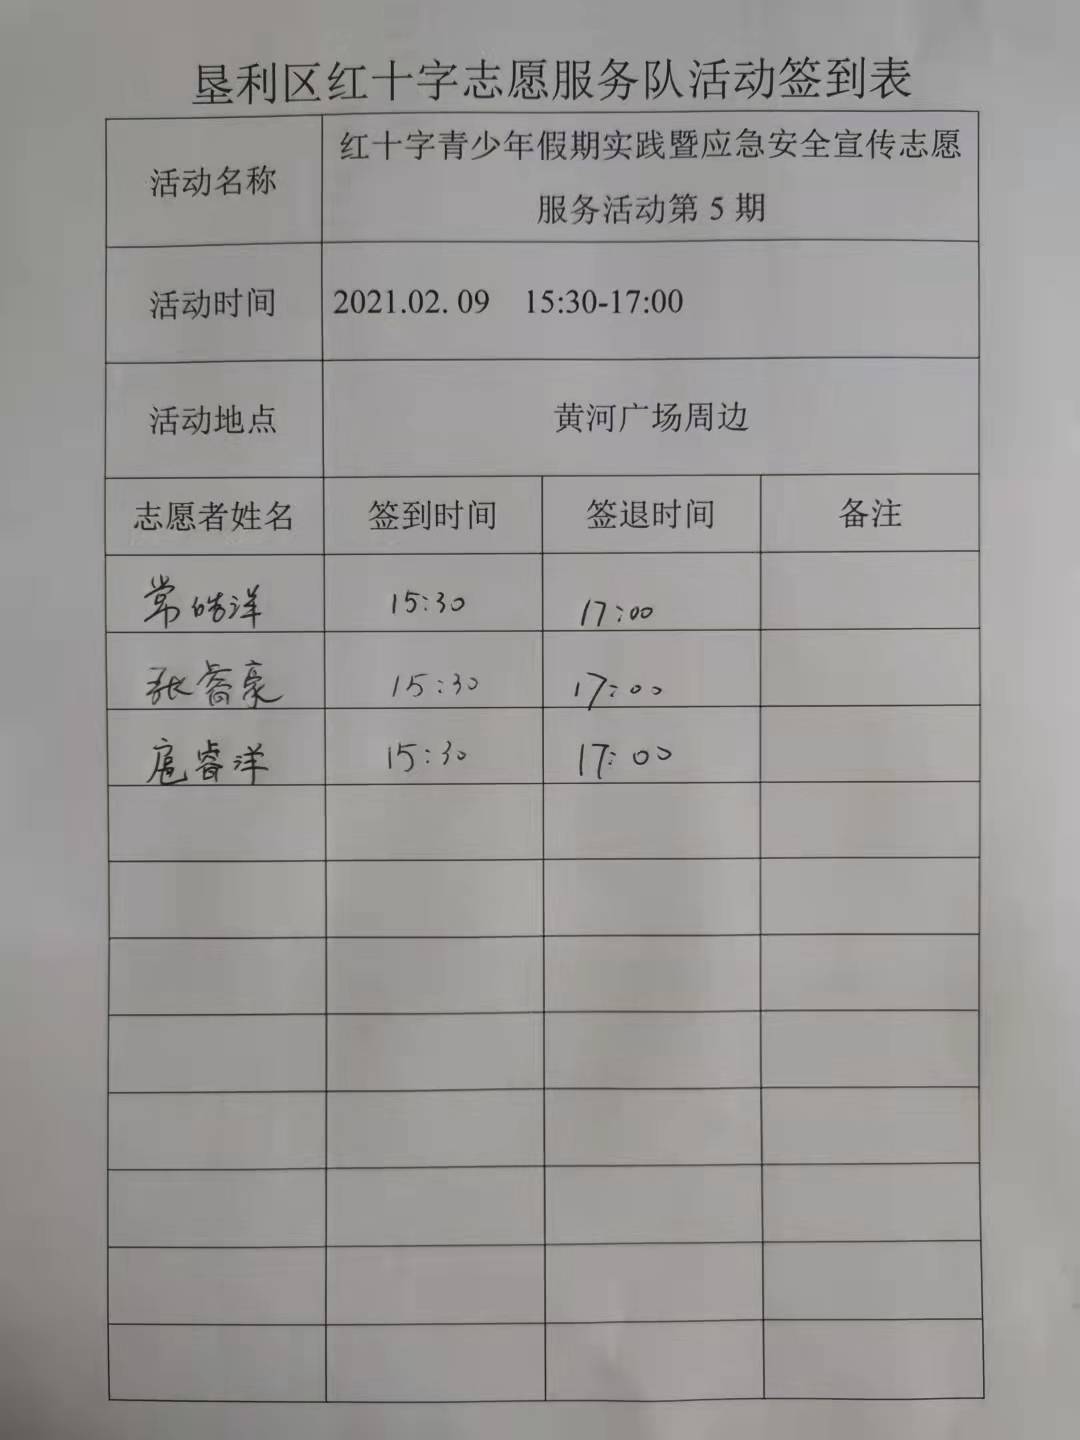 垦利区红十字志愿服务队活动签到表
活动名称
红十字青少年假期实践暨应急安全宣传志愿
服务活动第 5 期
活动时间
2021.02. 09 15:30-17:00
活动地点
黄河广场周边
志愿者姓名 签到时间 签退时间 备注
常皓洋 15:30 17:00
张睿豪 15:30 17:00
扈睿洋 15:30 17:00